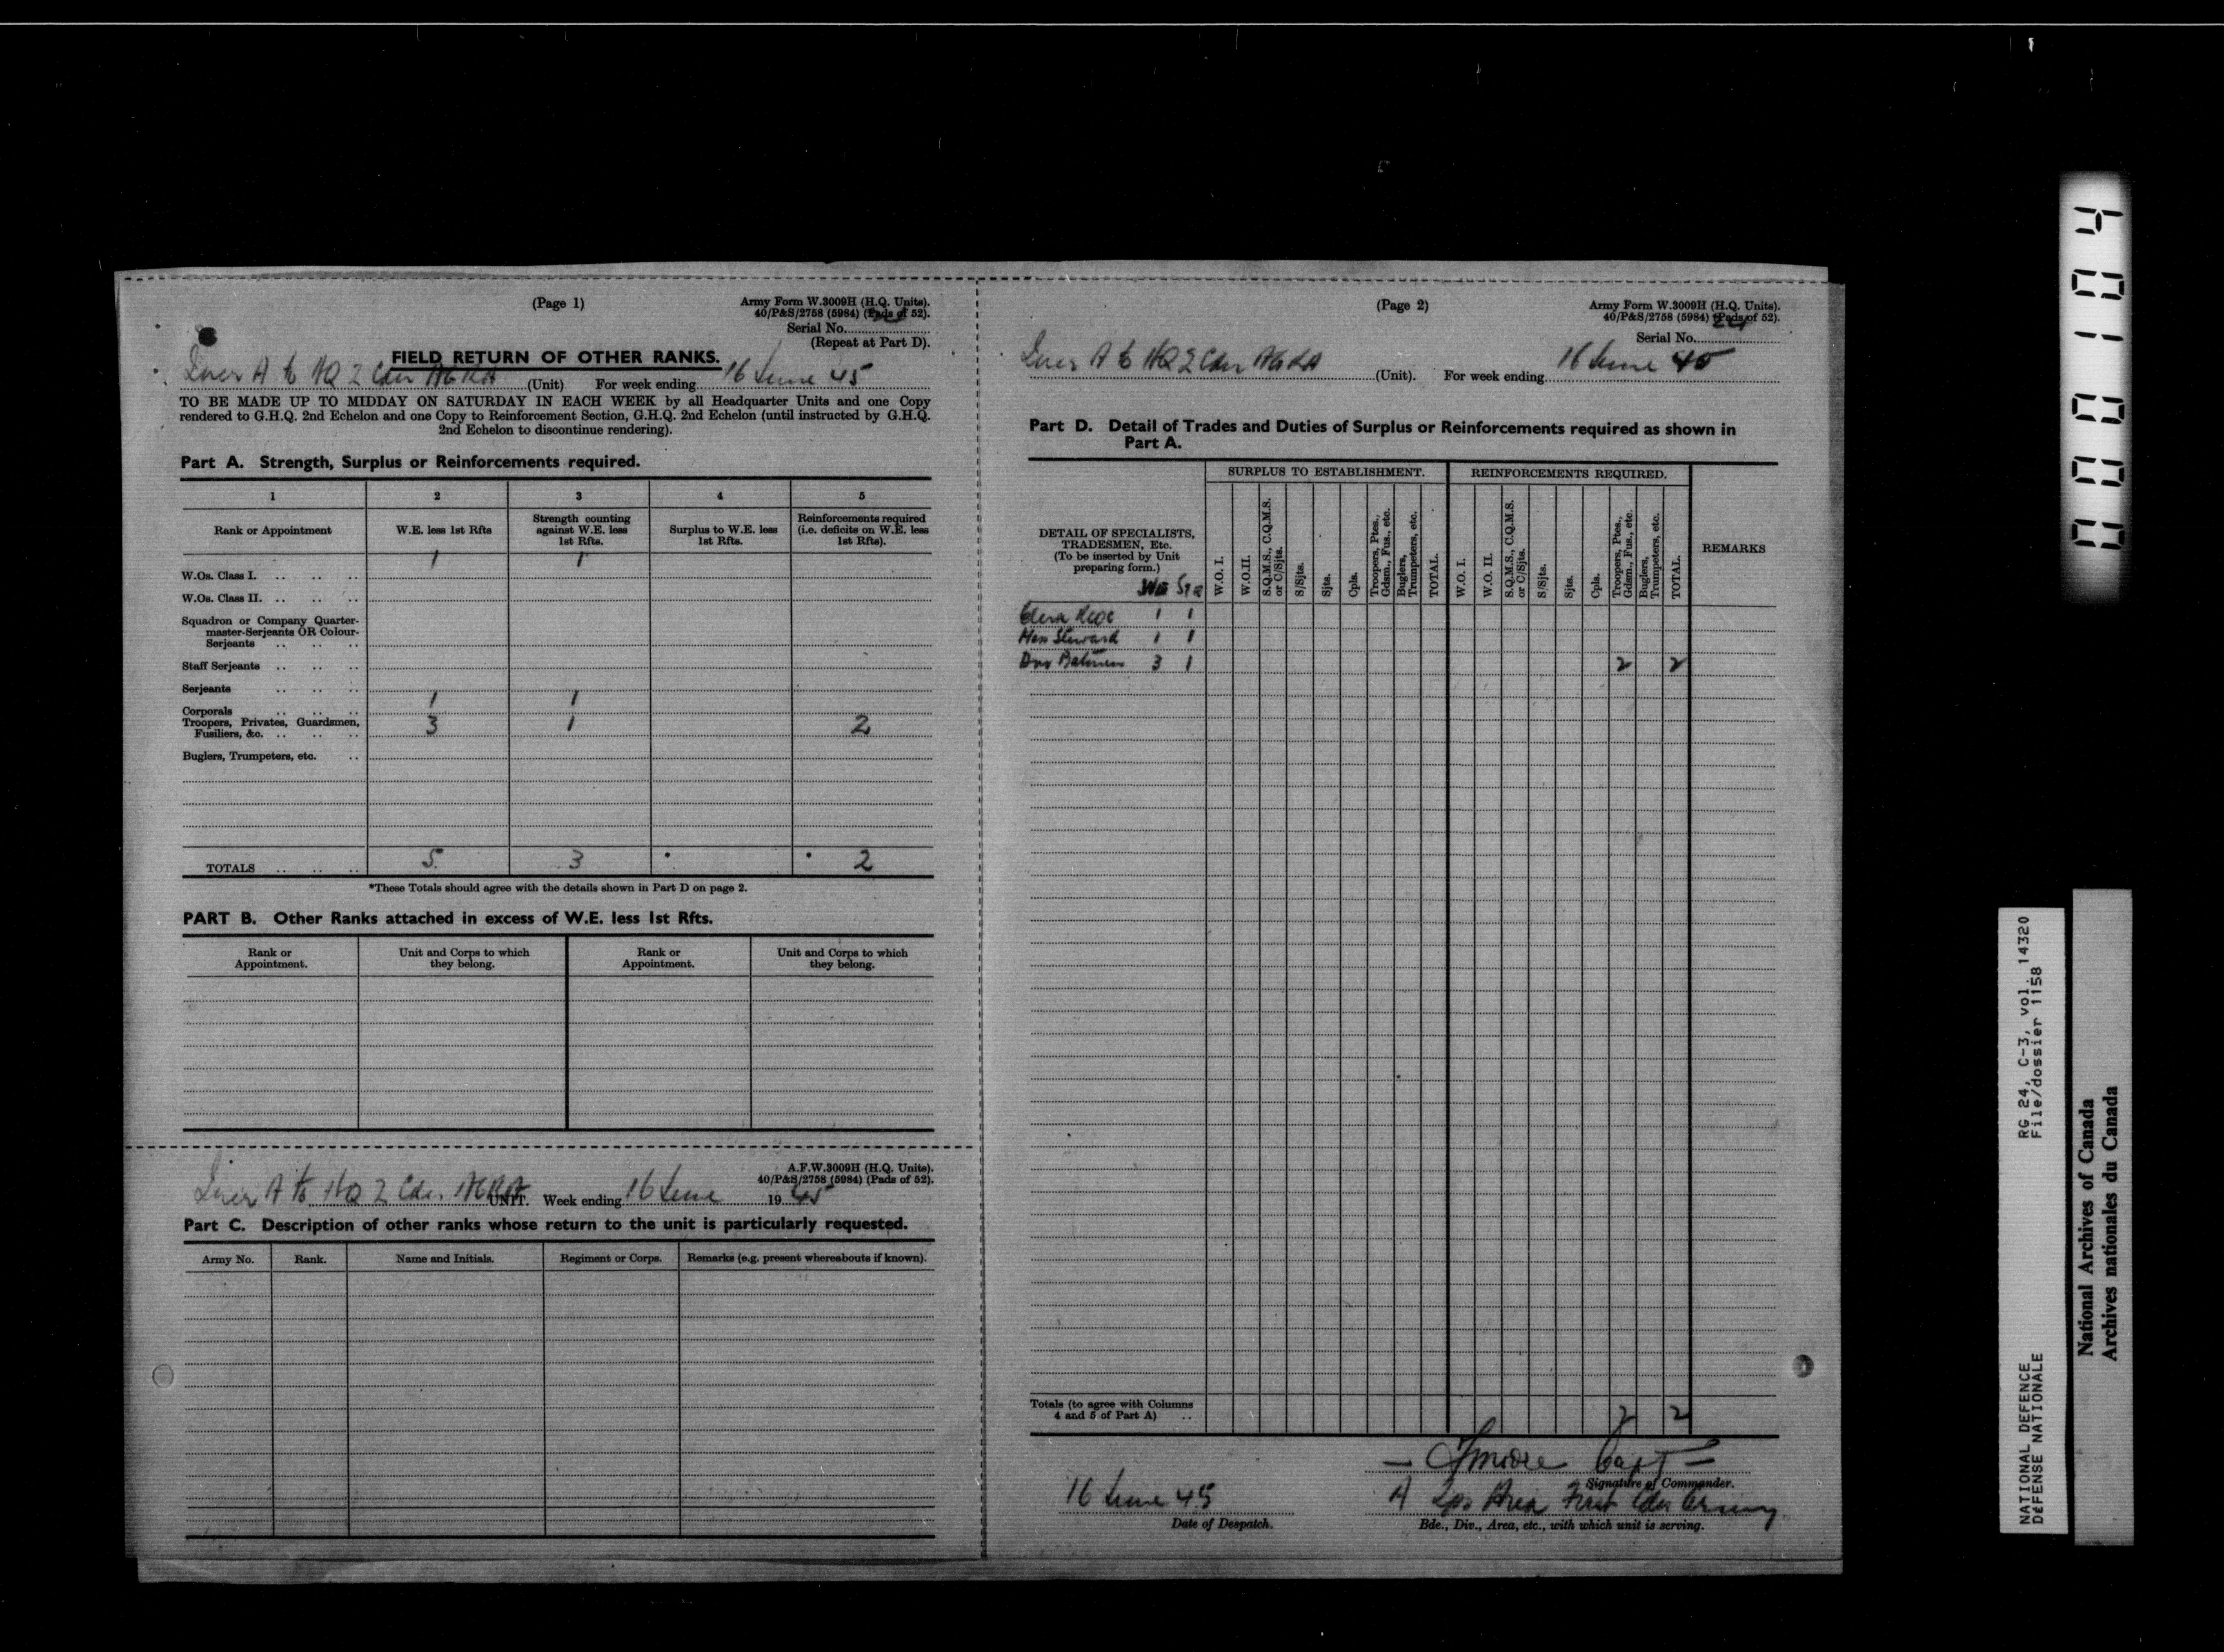 (Page 1)
Army Form W.3009H (H.Q. Units).
40/P&S/2758 (5984) (Pads of 52).
Serial No.
(Repeat at Part D).
FIELD RETURN OF OTHER RANKS.
A to HQ 2 Cdn AGRA (Unit) For week ending 16 June 45
TO BE MADE UP TO MIDDAY ON SATURDAY IN EACH WEEK by all Headquarter Units and one Copy
rendered to G.H.Q. 2nd Echelon and one Copy to Reinforcement Section, G.H.Q. 2nd Echelon (until instructed by G.H.Q.
2nd Echelon to discontinue rendering).
Part A. Strength, Surplus or Reinforcements required.
1 2 3 4 5
Rank or Appointment
W.E. less 1st Rfts
Strength counting against W.E. less 1st Rfts.
Surplus to W.E. less 1st Rfts.
Reinforcements required (i.e. deficits on W.E. less 1st Rfts).
1 1
W.Os. Class I. .. .. ..
W.Os. Class II. .. .. ..
Squadron or Company Quarter-
master-Serjeants OR Colour-
Serjeants .. .. ..
Staff Serjeants .. .. ..
Serjeants .. .. ..
Corporals .. .. .. 1 1
Troopers, Privates, Guardsmen,
Fusiliers, &c. .. .. .. 3 1 2
Buglers, Trumpeters, etc. ..
TOTALS .. .. .. 5 3 * * 2
*These Totals should agree with the details shown in Part D on page 2.
PART B. Other Ranks attached in excess of W.E. less 1st Rfts.
Rank or Appointment.
Unit and Corps to which they belong.
Rank or Appointment.
Unit and Corps to which they belong.
A.F.W.3009H (H.Q. Units).
40/P&S/2758 (5984) (Pads of 52).
A to HQ 2 Cdn AGRA UNIT. Week ending 16 June 1945
Part C. Description of other ranks whose return to the unit is particularly requested.
Army No. Rank. Name and Initials. Regiment or Corps. Remarks (e.g. present whereabouts if known).
(Page 2)
Army Form W.3009H (H.Q. Units).
40/P&S/2758 (5984) (Pads of 52).
Serial No.
A to HQ 2 Cdn AGRA (Unit). For week ending 16 June 45
Part D. Detail of Trades and Duties of Surplus or Reinforcements required as shown in
Part A.
SURPLUS TO ESTABLISHMENT. REINFORCEMENTS REQUIRED.
DETAIL OF SPECIALISTS,
TRADESMEN, Etc.
(To be inserted by Unit
preparing form.)
WE Str
W.O. I.
W.O.II.
S.Q.M.S., C.Q.M.S. or C/Sjts.
S/Sjts.
Sjts.
Cpls.
Troopers, Ptes., Gdsm., Fus., etc.
Buglers, Trumpeters, etc.
TOTAL.
W.O. I.
W.O. II.
S.Q.M.S., C.Q.M.S. or C/Sjts.
S/Sjts.
Sjts.
Cpls.
Troopers, Ptes., Gdsm., Fus., etc.
Buglers, Trumpeters, etc.
TOTAL.
REMARKS
Clerk 1 1
Mess Steward 1 1
Dvr Batmen 3 1 2 2
Totals (to agree with Columns
4 and 5 of Part A) .. 2 2
Capt
Signature of Commander.
16 June 45
A Area First Cdn Army
Date of Despatch.
Bde., Div., Area, etc., with which unit is serving.
000104
RG 24, C-3, vol. 14320
File/dossier 1158
NATIONAL DEFENCE
DÉFENSE NATIONALE
National Archives of Canada
Archives nationales du Canada